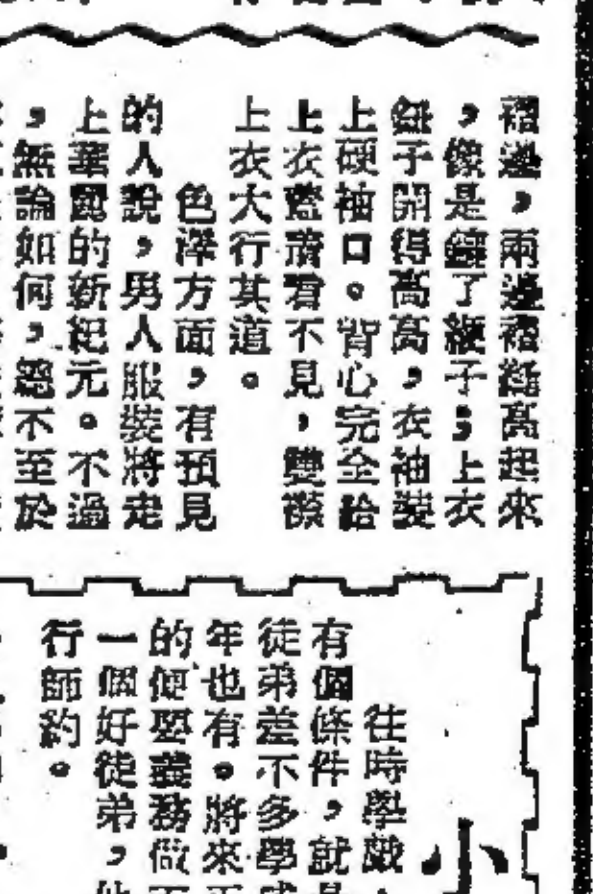 褶邊，兩邊褶縫高起來
，像是鑲了緶子；上衣
鈕子開得高高，衣袖裝
上硬袖口。背心完全給
上衣蓋着看不見，雙襟
上衣大行其道。
色澤方面，有預見
的人說，男人服裝將走
上華麗的新紀元。不過
，無論如何，總不至於
小
往時學戲，
有個條件，就是
徒弟差不多學
年也有。將來
的便要義務做
一個好徒弟，他
行師約。